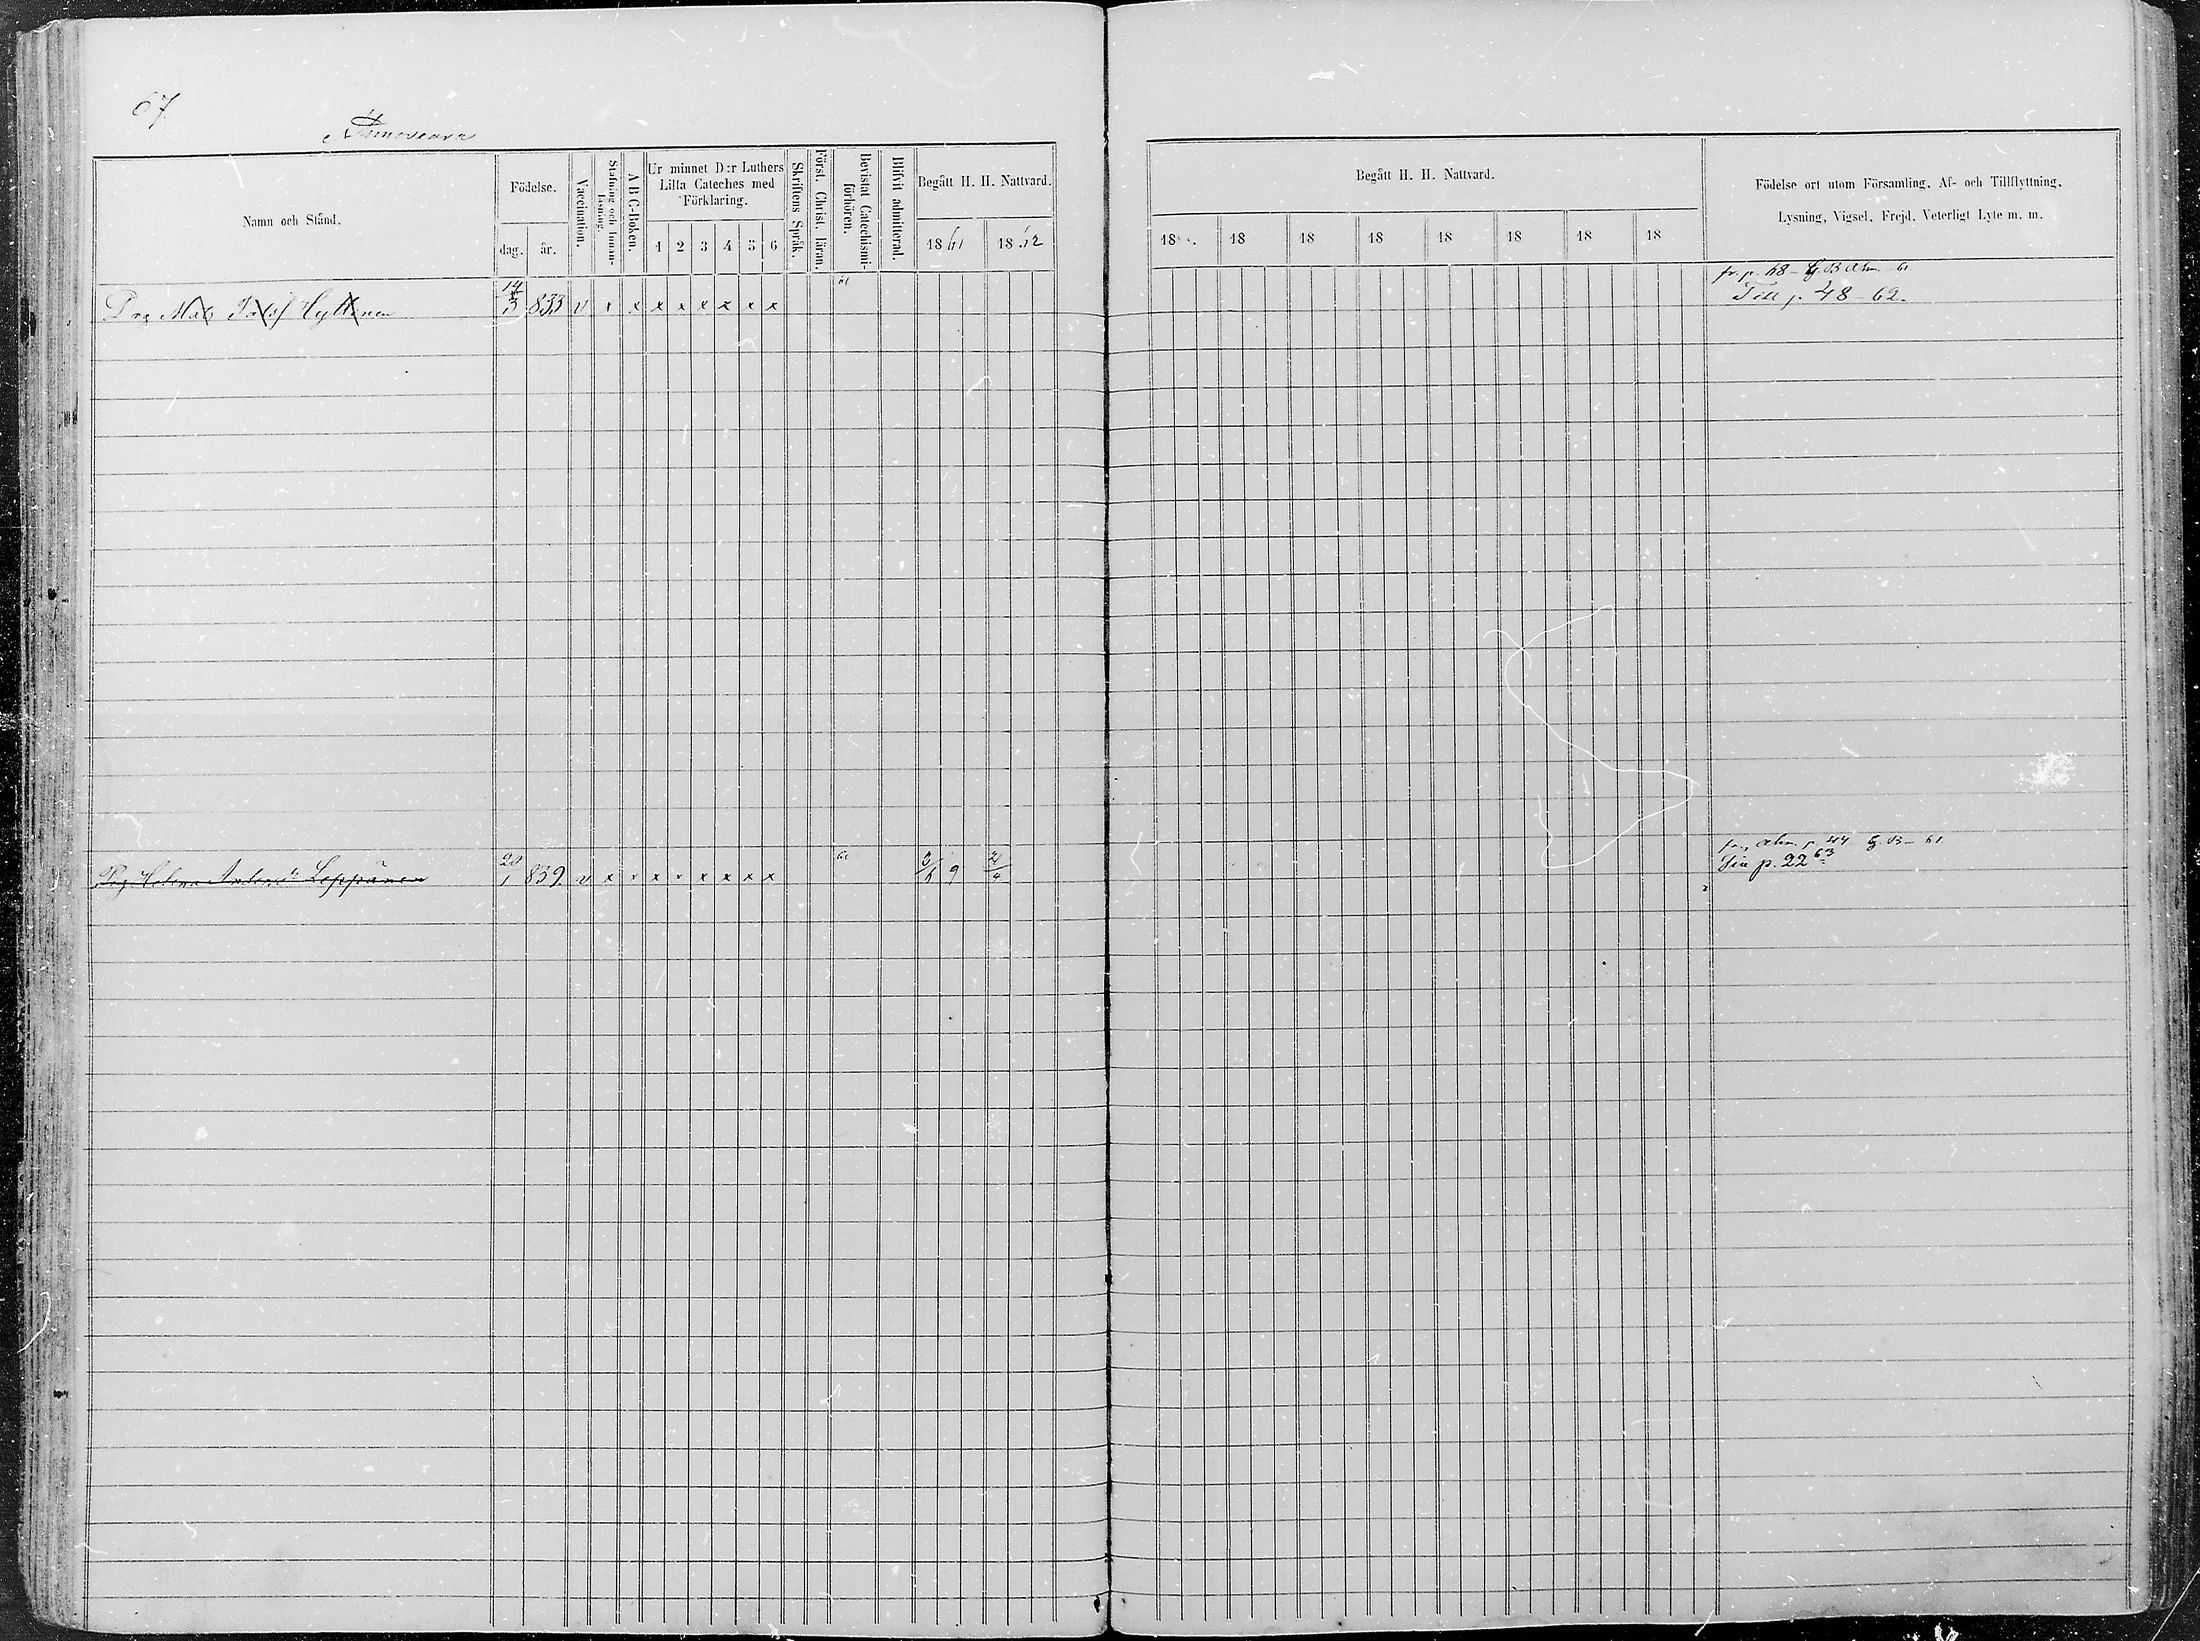 67
Namn och Stånd.
Födelse.
dag. år.
Vaccination.
Stafning och Innanläsning.
A B C-Boken.
Ur minnet D:r Luthers Lilla Cateches med Förklaring.
1 2 3 4 5 6
Skriftens Språk.
Först. Christ. läran.
Bevistat Catechismiförhören.
Blifvit admitterad.
Begått H. H. Nattvard.
1861 1862
Begått H. H. Nattvard.
18 18 18 18 18 18 18 18
Födelse ort utom Församling, Af- och Tillflyttning, Lysning, Vigsel, Frejd, Veterligt Lyte m. m.
fr. p. 68 - G B Ahm -61
Drg Mats Josef Hyttinen 14/3 833 v x x x x x x x x 61 Till p. 48 - 62.
fr. Ahm. p. 44 G. B - 61
Pig Helena Leppänen 20/1 839 v x x x x x x x x 61 3/6 9 21/4 Sia p. 22 63